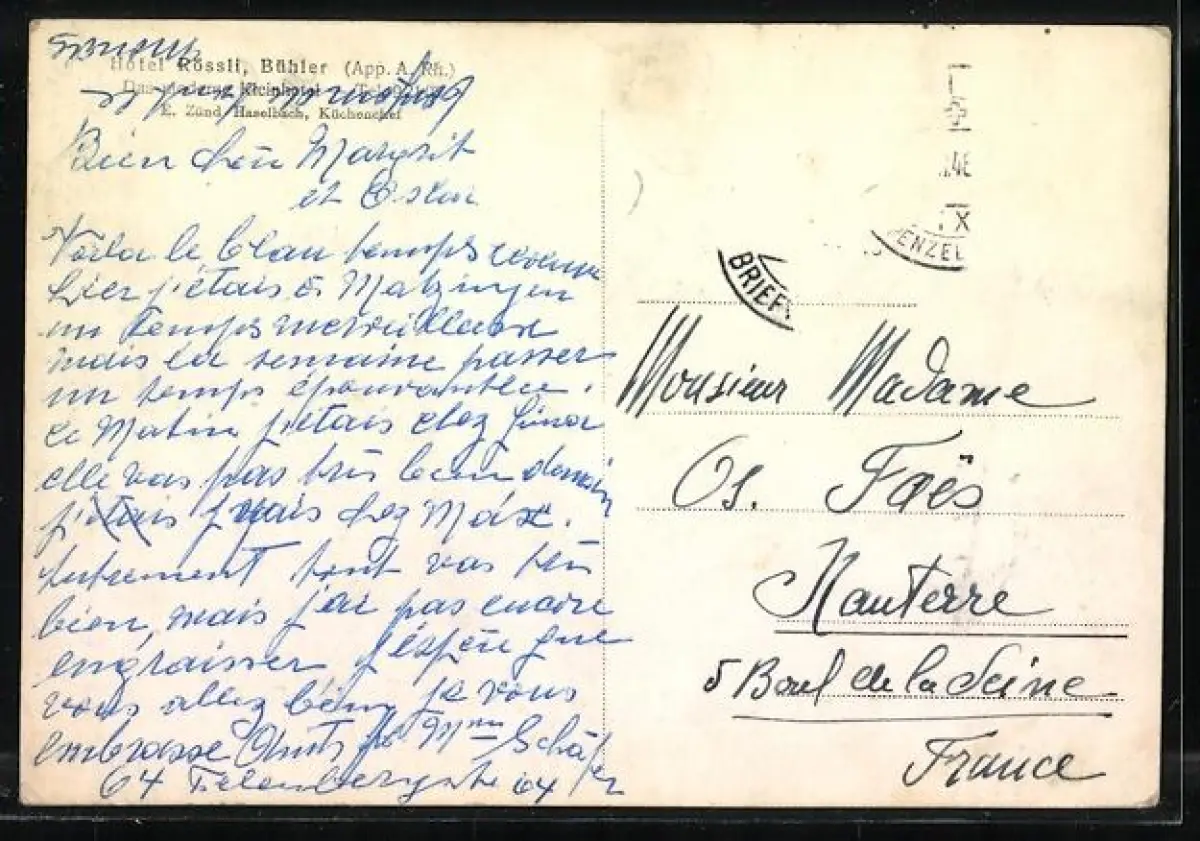 Hotel Rössli, Bühler (App. A. Rh.)
Das moderne Kleinhotel Tel.
E. Zünd Haselbach, Küchenchef
Bien cheu Margrit
et Oskar
Voila le beau temps revenue
hier j'étais à Matzingen
un temps merveilleuse
mais la semaine passer
un temps épouvantlee.
le Matin j'étais chez
elle vas pas très bien demain
j'étais j vais chez Max.
autrement tout vas très
bien, mais j'ai pas encore
engraisser j'espeu que
vous allez bien, je vous
embrasse Schäfer
64
BRIEF
PENZEL
.46
X
Monsieur Madame
Os. Faës
Nanterre
5 Boul de la Seine
France